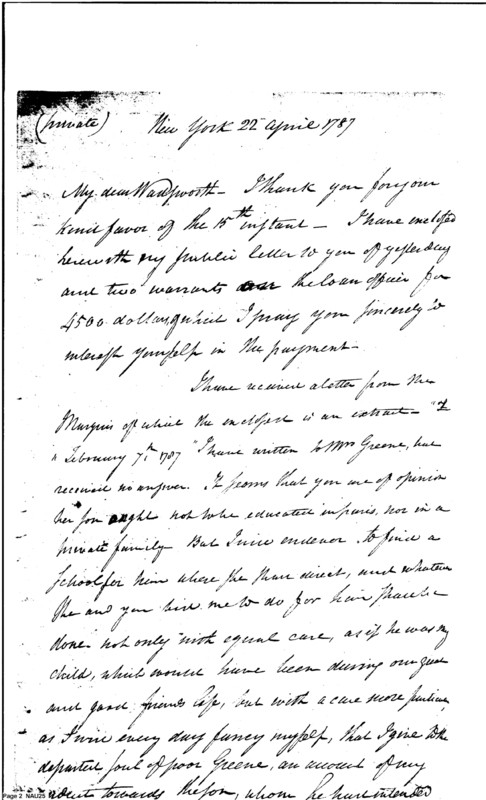 (private) New York 22 April 1787
My dear Wadsworth - I thank you for your
kind favor of the 15th instant - I have enclosed
herewith my public letter to you of yesterday
and two warrants the loan officer for
4500 dollars, which I pray you sincerely to
interest yourself in the payment -
I have received a letter from the
Marquis of which the enclosed is an extract -
" February 7th 1787 "I have written to Mrs Greene, but
received no answer. It seems that you are of opinion
her son ought not to be educated in paris, nor in a
private family. But I will endevor to find a
School for him where she shall direct, and whatever
she and you bid me to do for him shall be
done not only with equal care, as if he was my
child, which would have been during our great
and good friends life, but with a care more particular,
as I will every day fancy myself, that I give to the
departed soul of poor Greene, an account of my
towards the son, whom he had intended
Page 2 NAU25